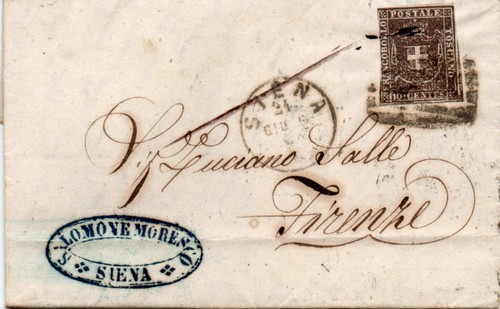 FRANCOBOLLO
POSTALE
TOSCANO
10 CENTES
SIENA
24
GIU
Sig Luciano
Firenze
SALOMONE MORESCO
SIENA